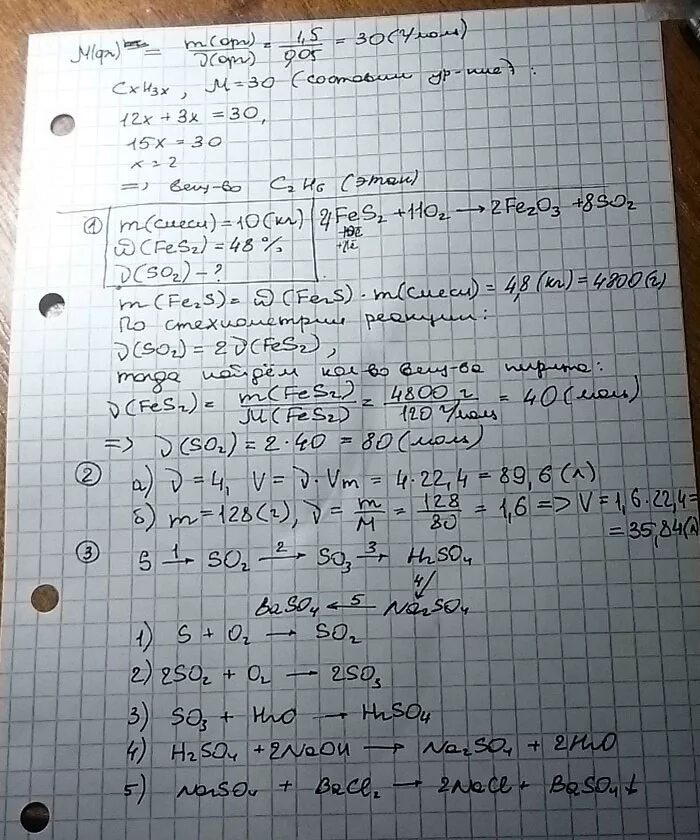 M(орг) = m(орг)/ν(орг) = 1,5/0,05 = 30 (г/моль)
CxH3x, M=30 (составим ур-ние):
12x + 3x = 30,
15x = 30
x = 2
=> вещ-во C2H6 (этан)
① m(смеси) = 10 (кг)
ω̄(FeS2) = 48 %
ν(SO2) - ?
4FeS2 + 11O2 → 2Fe2O3 + 8SO2
m(Fe2S) = ω̄(Fe2S) · m(смеси) = 4,8 (кг) = 4800 (г)
По стехиометрии реакции:
ν(SO2) = 2ν(FeS2),
тогда найдём кол-во вещ-ва пирита:
ν(FeS2) = m(FeS2)/M(FeS2) = 4800 г/120 г/моль = 40 (моль)
=> ν(SO2) = 2·40 = 80 (моль)
② а) ν = 4, V = ν·Vm = 4·22,4 = 89,6 (л)
б) m = 128 (г), ν = m/M = 128/80 = 1,6 => V = 1,6·22,4 =
= 35,84 (л)
③ S 1→ SO2 2→ SO3 3→ H2SO4
4↙
BaSO4 ←5 Na2SO4
1) S + O2 → SO2
2) 2SO2 + O2 → 2SO3
3) SO3 + H2O → H2SO4
4) H2SO4 + 2NaOH → Na2SO4 + 2H2O
5) Na2SO4 + BaCl2 → 2NaCl + BaSO4↓